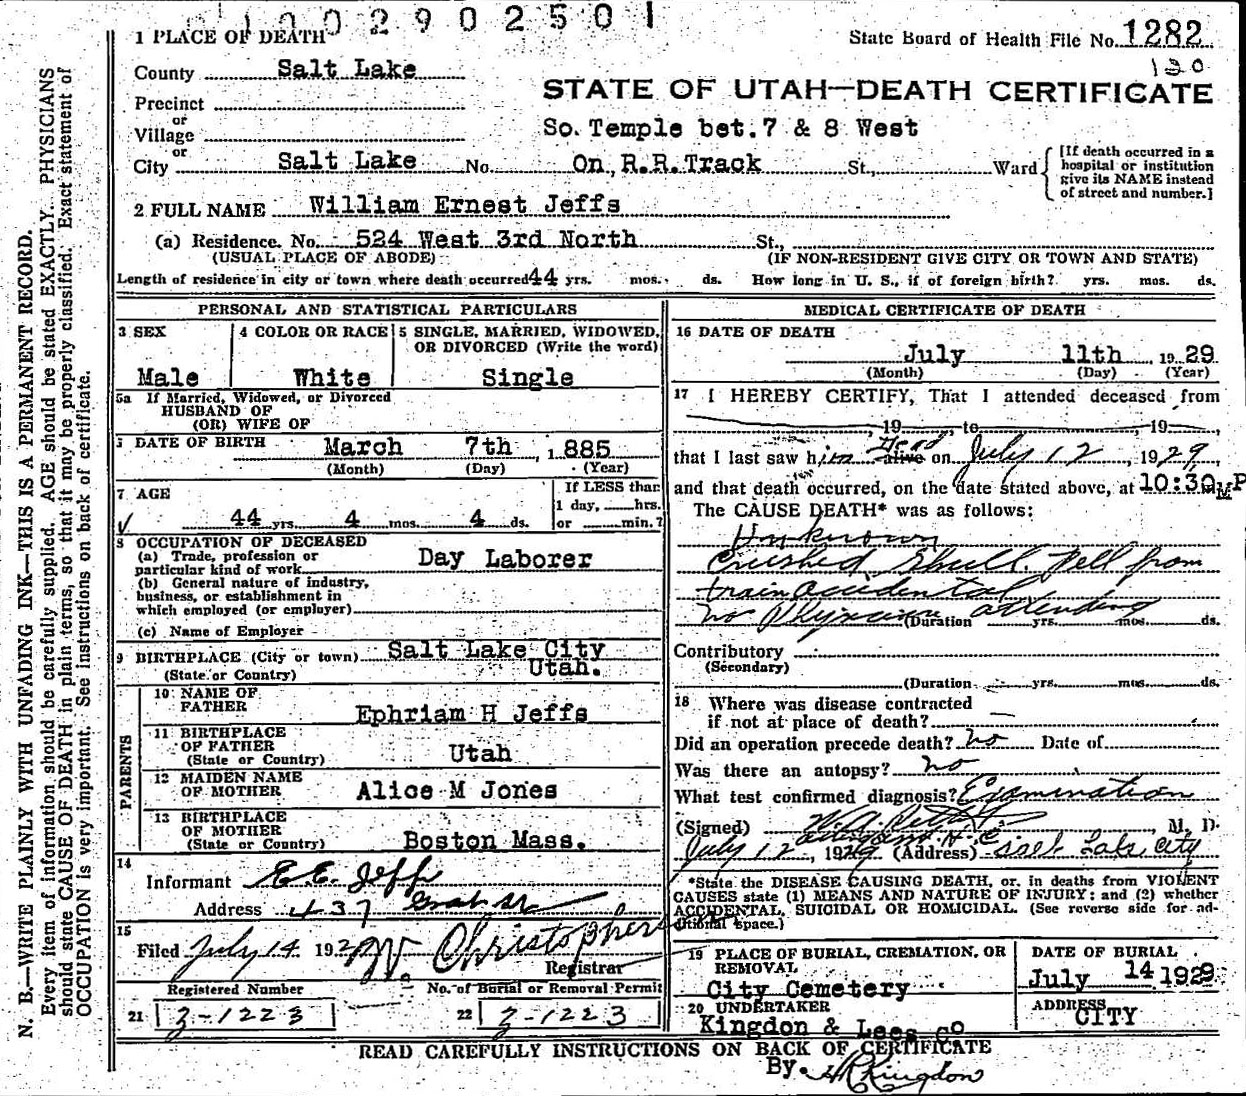 1002902501
1 PLACE OF DEATH
State Board of Health File No. 1282
120
County Salt Lake
STATE OF UTAH—DEATH CERTIFICATE
Precinct
or
Village
So. Temple bet. 7 & 8 West
or
City Salt Lake No. On, R.R. Track St., Ward
[If death occurred in a
hospital or institution
give its NAME instead
of street and number.]
2 FULL NAME William Ernest Jeffs
(a) Residence. No. 524 West 3rd North St.,
(USUAL PLACE OF ABODE) (IF NON-RESIDENT GIVE CITY OR TOWN AND STATE)
Length of residence in city or town where death occurred 44 yrs. mos. ds. How long in U. S., if of foreign birth? yrs. mos. ds.
PERSONAL AND STATISTICAL PARTICULARS
3 SEX
Male
4 COLOR OR RACE
White
5 SINGLE, MARRIED, WIDOWED,
OR DIVORCED (Write the word)
Single
5a If Married, Widowed, or Divorced
HUSBAND OF
(OR) WIFE OF
DATE OF BIRTH March 7th 1885
(Month) (Day) (Year)
7 AGE
44 yrs. 4 mos. 4 ds.
If LESS than
1 day, hrs.
or min.?
8 OCCUPATION OF DECEASED
(a) Trade, profession or
particular kind of work Day Laborer
(b) General nature of industry,
business, or establishment in
which employed (or employer)
(c) Name of Employer
9 BIRTHPLACE (City or town) Salt Lake City
(State or Country) Utah.
PARENTS
10 NAME OF
FATHER Ephriam H Jeffs
11 BIRTHPLACE
OF FATHER
(State or Country) Utah
12 MAIDEN NAME
OF MOTHER Alice M Jones
13 BIRTHPLACE
OF MOTHER
(State or Country) Boston Mass.
14
Informant E.E. Jeffs
Address 437
15
Filed July 14 192 W. Christopherson
Registrar
Registered Number No. of Burial or Removal Permit
21 Z-1223 22 Z-1223
MEDICAL CERTIFICATE OF DEATH
16 DATE OF DEATH
July 11th 1929
(Month) (Day) (Year)
17 I HEREBY CERTIFY, That I attended deceased from
19 to 19
that I last saw him alive Dead on July 12, 1929,
and that death occurred, on the date stated above, at 10:30 P M
The CAUSE DEATH* was as follows:
Unknown
Crushed Skull. Fell from
train accidental
no Physician attending
(Duration yrs. mos. ds.
Contributory
(Secondary)
(Duration yrs. mos. ds.
18 Where was disease contracted
if not at place of death?
Did an operation precede death? no Date of
Was there an autopsy? no
What test confirmed diagnosis? Examination
(Signed) M. D.
July 12, 1929 (Address) Salt Lake City
*State the DISEASE CAUSING DEATH, or, in deaths from VIOLENT
CAUSES state (1) MEANS AND NATURE OF INJURY; and (2) whether
ACCIDENTAL, SUICIDAL OR HOMICIDAL. (See reverse side for ad-
ditional space.)
19 PLACE OF BURIAL, CREMATION, OR
REMOVAL
City Cemetery
DATE OF BURIAL
July 14 1929
20 UNDERTAKER
Kingdon & Lees Co
ADDRESS
CITY
READ CAREFULLY INSTRUCTIONS ON BACK OF CERTIFICATE
By. Kingdon
N. B.—WRITE PLAINLY WITH UNFADING INK—THIS IS A PERMANENT RECORD.
Every item of information should be carefully supplied. AGE should be stated EXACTLY. PHYSICIANS
should state CAUSE OF DEATH in plain terms, so that it may be properly classified. Exact statement of
OCCUPATION is very important. See instructions on back of certificate.